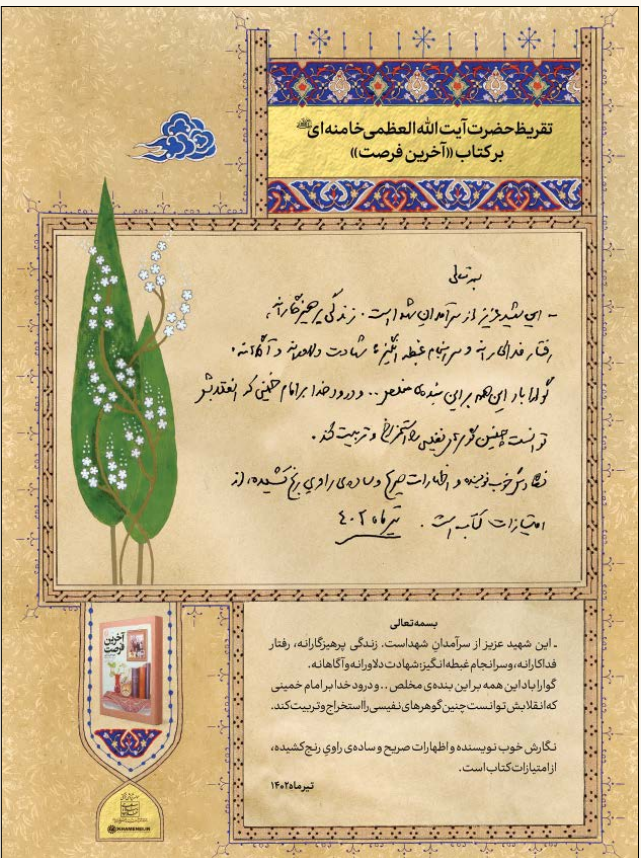 تقریظ حضرت آیت الله العظمی خامنه‌ای
بر کتاب «آخرین فرصت»
بسمه تعالی
- این شهید عزیز از سرآمدان شهدا است. زندگی پرهیزگارانه،
رفتار فداکارانه و سرانجام غبطه انگیز؛ شهادت دلاورانه و آگاهانه.
گوارا باد این همه بر این بنده‌ی مخلص .. و درود خدا بر امام خمینی که انقلابش
توانست چنین گوهرهای نفیسی را استخراج و تربیت کند.
نگارش خوب نویسنده و اظهارات صریح و ساده‌ی راوی رنج کشیده، از
امتیازات کتاب است. تیر ماه ۱۴۰۲
آخرین
فرصت
بسمه تعالی
ـ این شهید عزیز از سرآمدانِ شهداست. زندگی پرهیزگارانه، رفتار
فداکارانه، و سرانجام غبطه‌انگیز؛ شهادت دلاورانه و آگاهانه.
گوارا باد این همه بر این بنده‌ی مخلص .. و درود خدا بر امام خمینی
که انقلابش توانست چنین گوهرهای نفیسی را استخراج و تربیت کند.
نگارش خوب نویسنده و اظهارات صریح و ساده‌ی راویِ رنج کشیده،
از امتیازات کتاب است.
تیر ماه ۱۴۰۲
KHAMENEI.IR